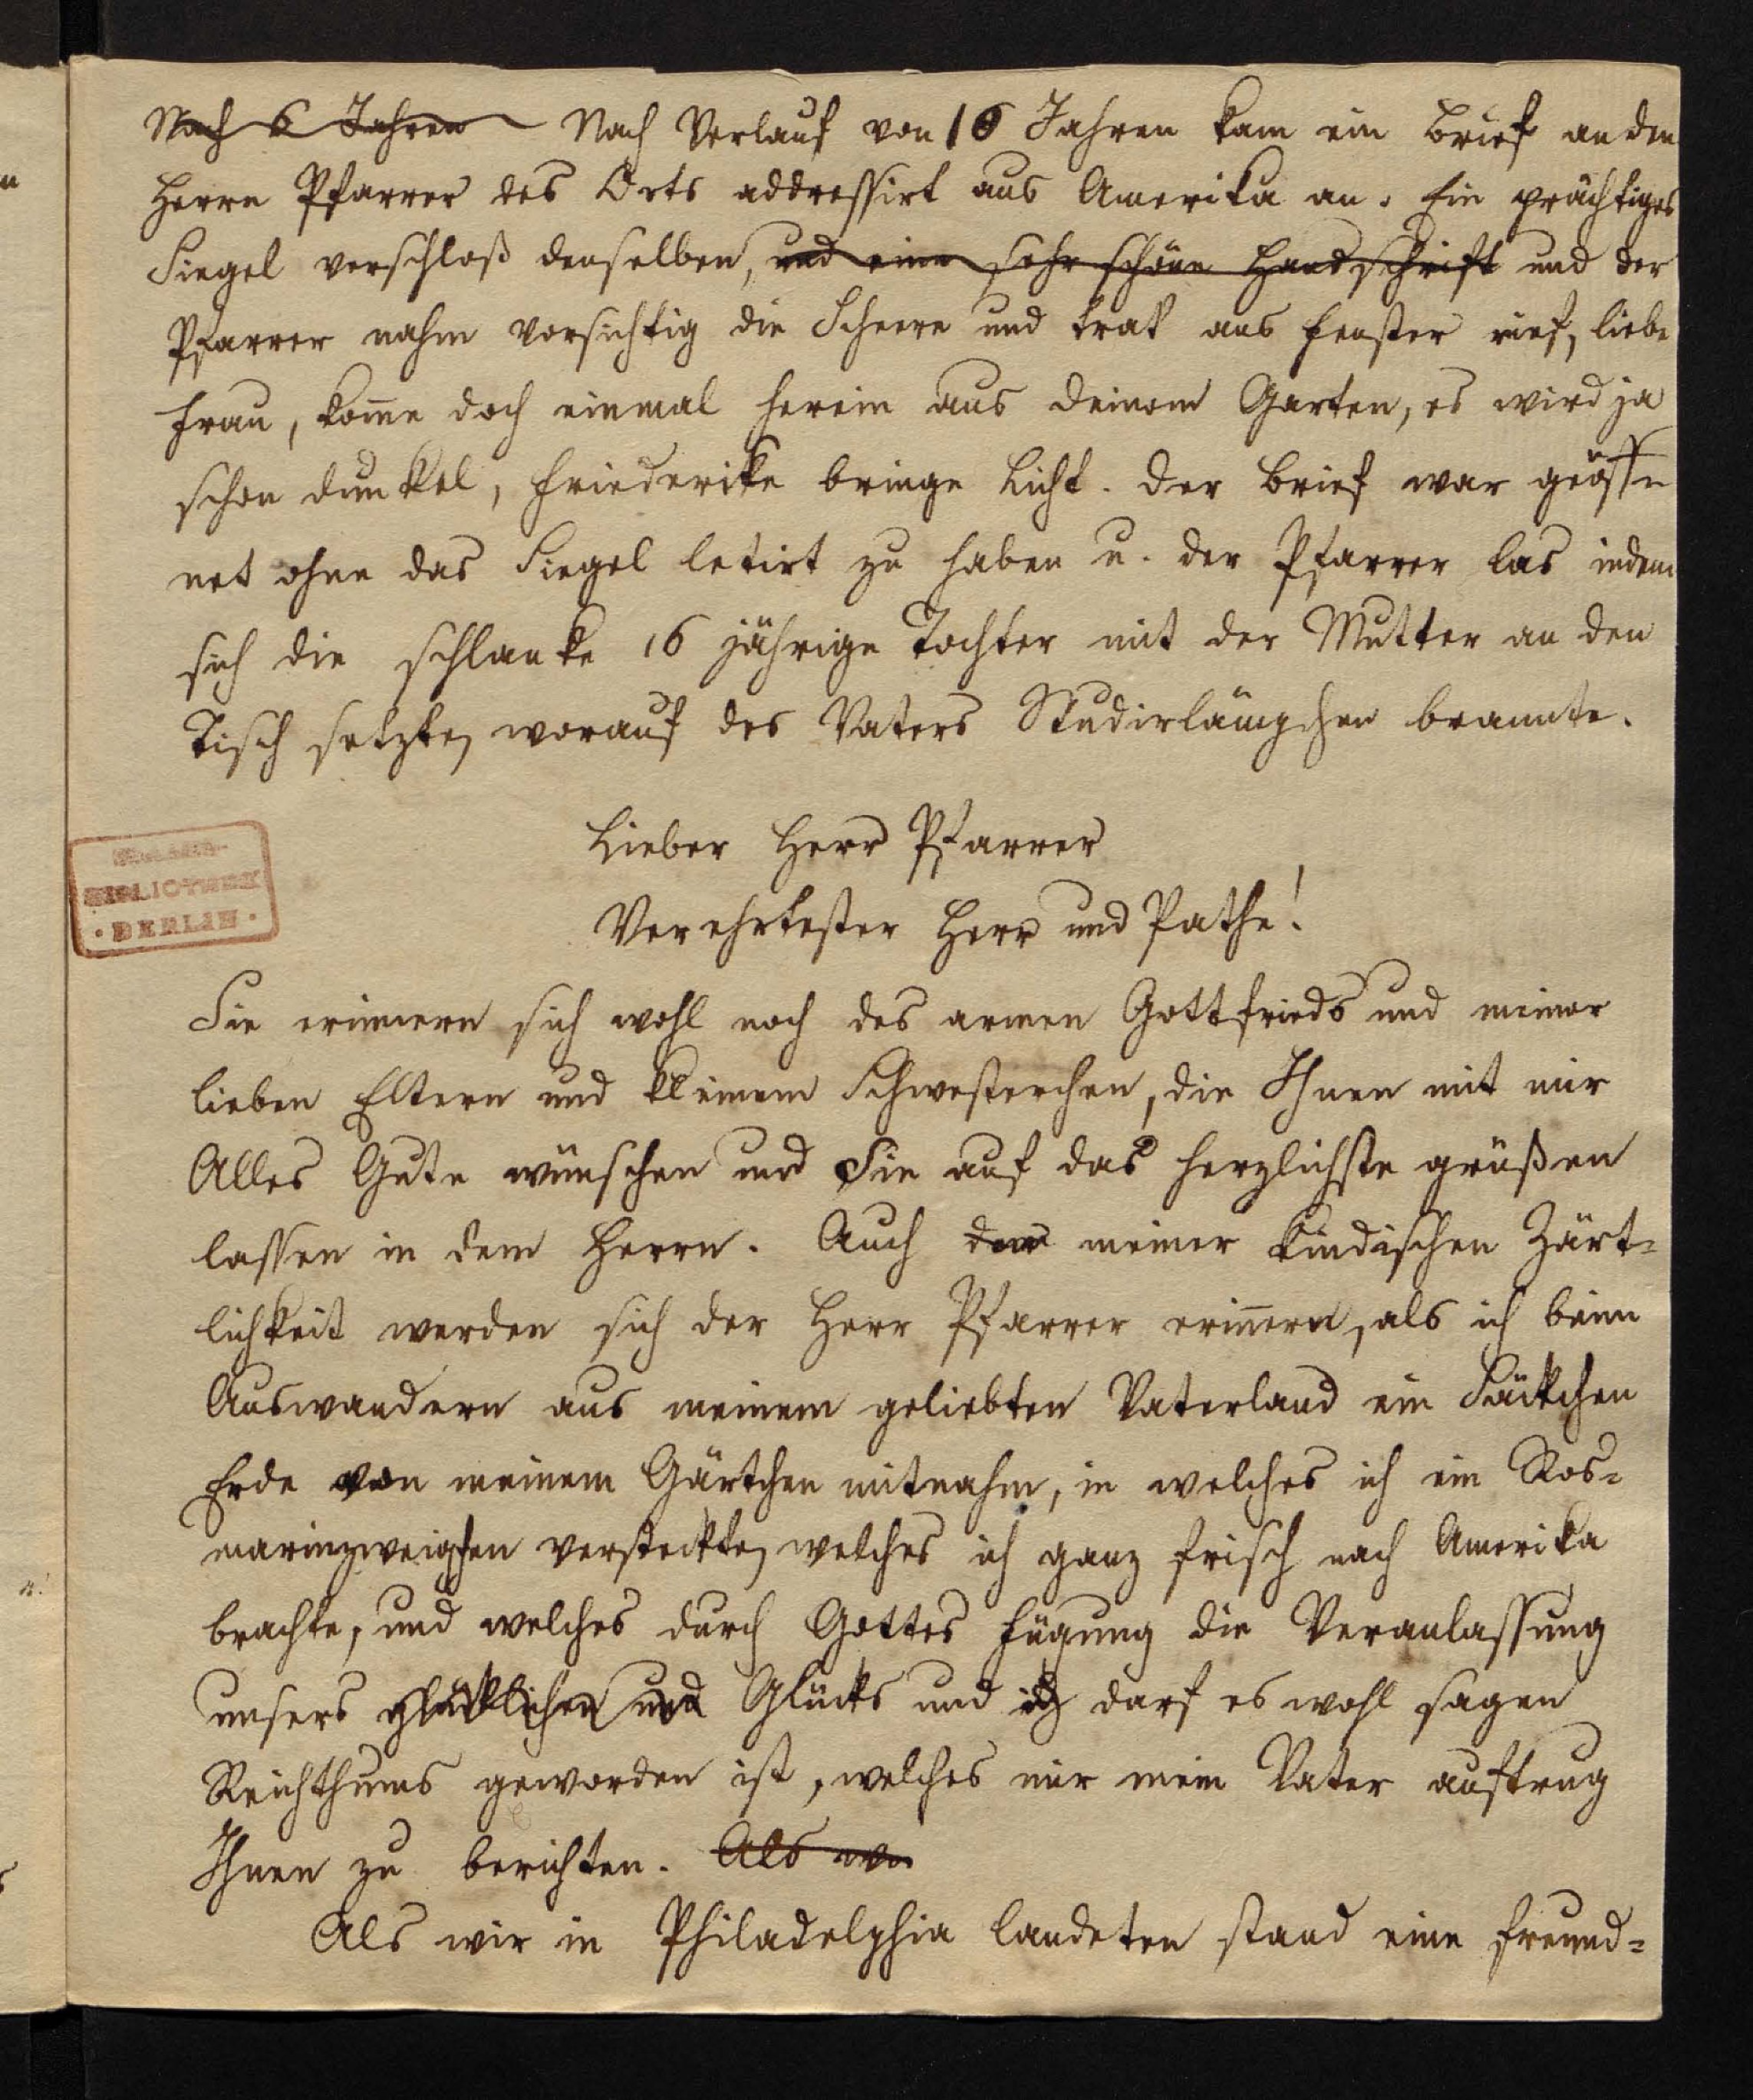 Nach 6 Jahren Nach Verlauf von 16 Jahren kam ein Brief an den
Herrn Pfarrer des Orts addressirt aus Amerika an. Ein prächtiges
Siegel verschloß denselben, und eine sehr schöne Handschrift und der
Pfarrer nahm vorsichtig die Scheere und trat ans Fenster rief, liebe
Frau, kom̄e doch einmal herein aus deinem Garten, es wird ja
schon dunkel, Friederike bringe Licht. Der Brief war geöff
net ohne das Siegel letirt zu haben u. der Pfarrer las indem
sich die schlanke 16 jährige Tochter mit der Mutter an den
Tisch setzte, worauf des Vaters Studirlämpchen brannte.
Lieber Herr Pfarrer
Verehrtester Herr und Pathe!
Sie erinnern sich wohl noch des armen Gottfrieds und meiner
lieben Eltern und kleinem Schwesterchen, die Ihnen mit mir
Alles Gute wünschen und Sie auf das herzlichste grüßen
lassen in dem Herrn. Auch meiner kindischen Zärt=
lichkeit werden sich der Herr Pfarrer erin̄ern, als ich beim
Auswandern aus meinem geliebten Vaterland ein Säckchen
Erde von meinem Gärtchen mitnahm, in welches ich ein Ros=
marinzweigchen versteckte, welches ich ganz frisch nach Amerika
brachte, und welches durch Gottes Fügung die Veranlassung
unsers glücklichen und Glücks und ich darf es wohl sagen
Reichthums geworden ist, welches mir mein Vater auftrug
Ihnen zu berichten. Als
Als wir in Philadelphia landeten stand eine freund=
BIBLIOTHEK
BERLIN